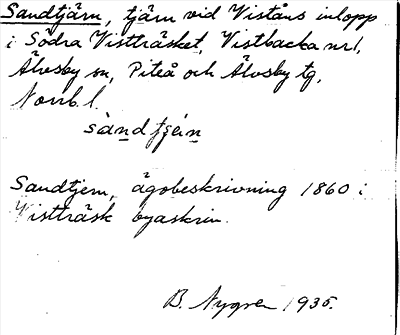 Sandtjärn, tjärn vid Viståns inlopp
i Södra Vistträsket, Vistbacka nr1,
Älvsby sn, Piteå och Älvsby tg,
Norrb. l.
Sandtjern, ägobeskrivning 1860 i
Vistträsk byaskrin.
B. Nygren 1935.